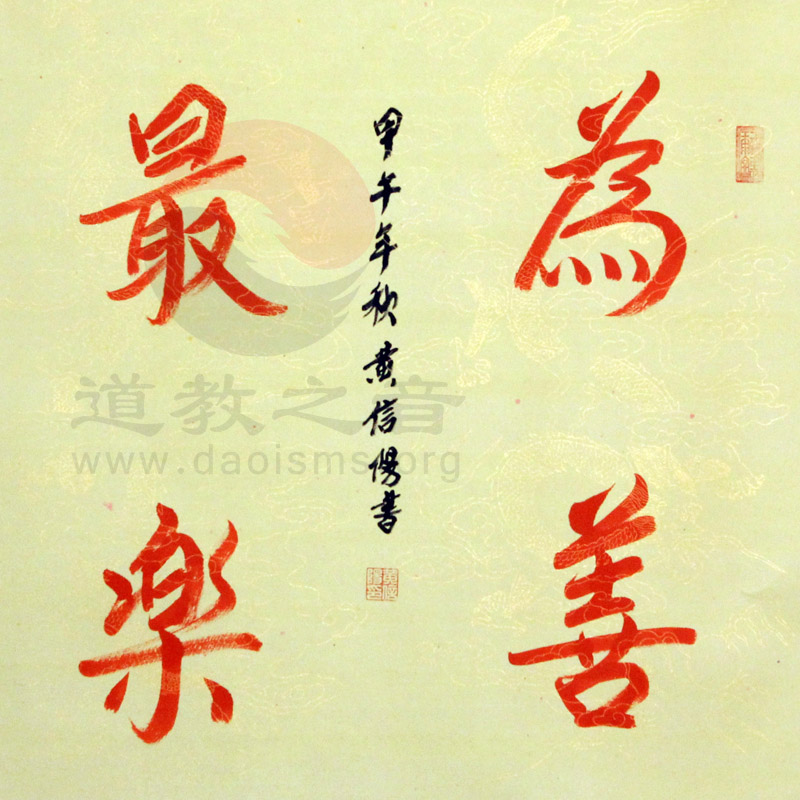 為善
最樂
甲午年秋黄信陽書
道教之音
www.daoisms.org